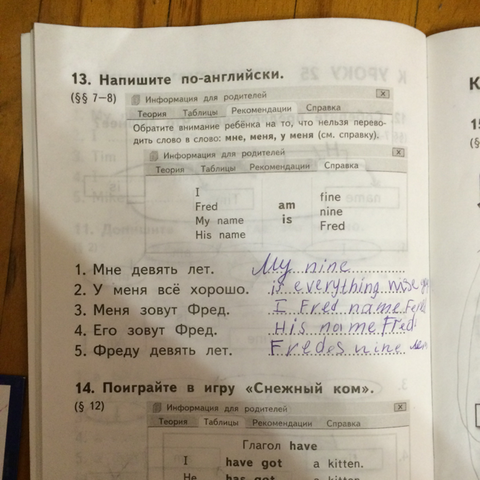 К УРОКУ 25
13. Напишите по-английски.
(§§ 7–8)
Информация для родителей
Теория Таблицы Рекомендации Справка
Обратите внимание ребёнка на то, что нельзя перево-
дить слово в слово: мне, меня, у меня (см. справку).
Информация для родителей
Теория Таблицы Рекомендации Справка
I
Fred
My name
His name
am
is
fine
nine
Fred
1. Мне девять лет. My nine
2. У меня всё хорошо. is everything
3. Меня зовут Фред. I Fred name
4. Его зовут Фред. His name Fred
5. Фреду девять лет. Fredes nine
14. Поиграйте в игру «Снежный ком».
(§ 12)
Информация для родителей
Теория Таблицы Рекомендации Справка
Глагол have
I have got a kitten.
He has got a kitten.
К